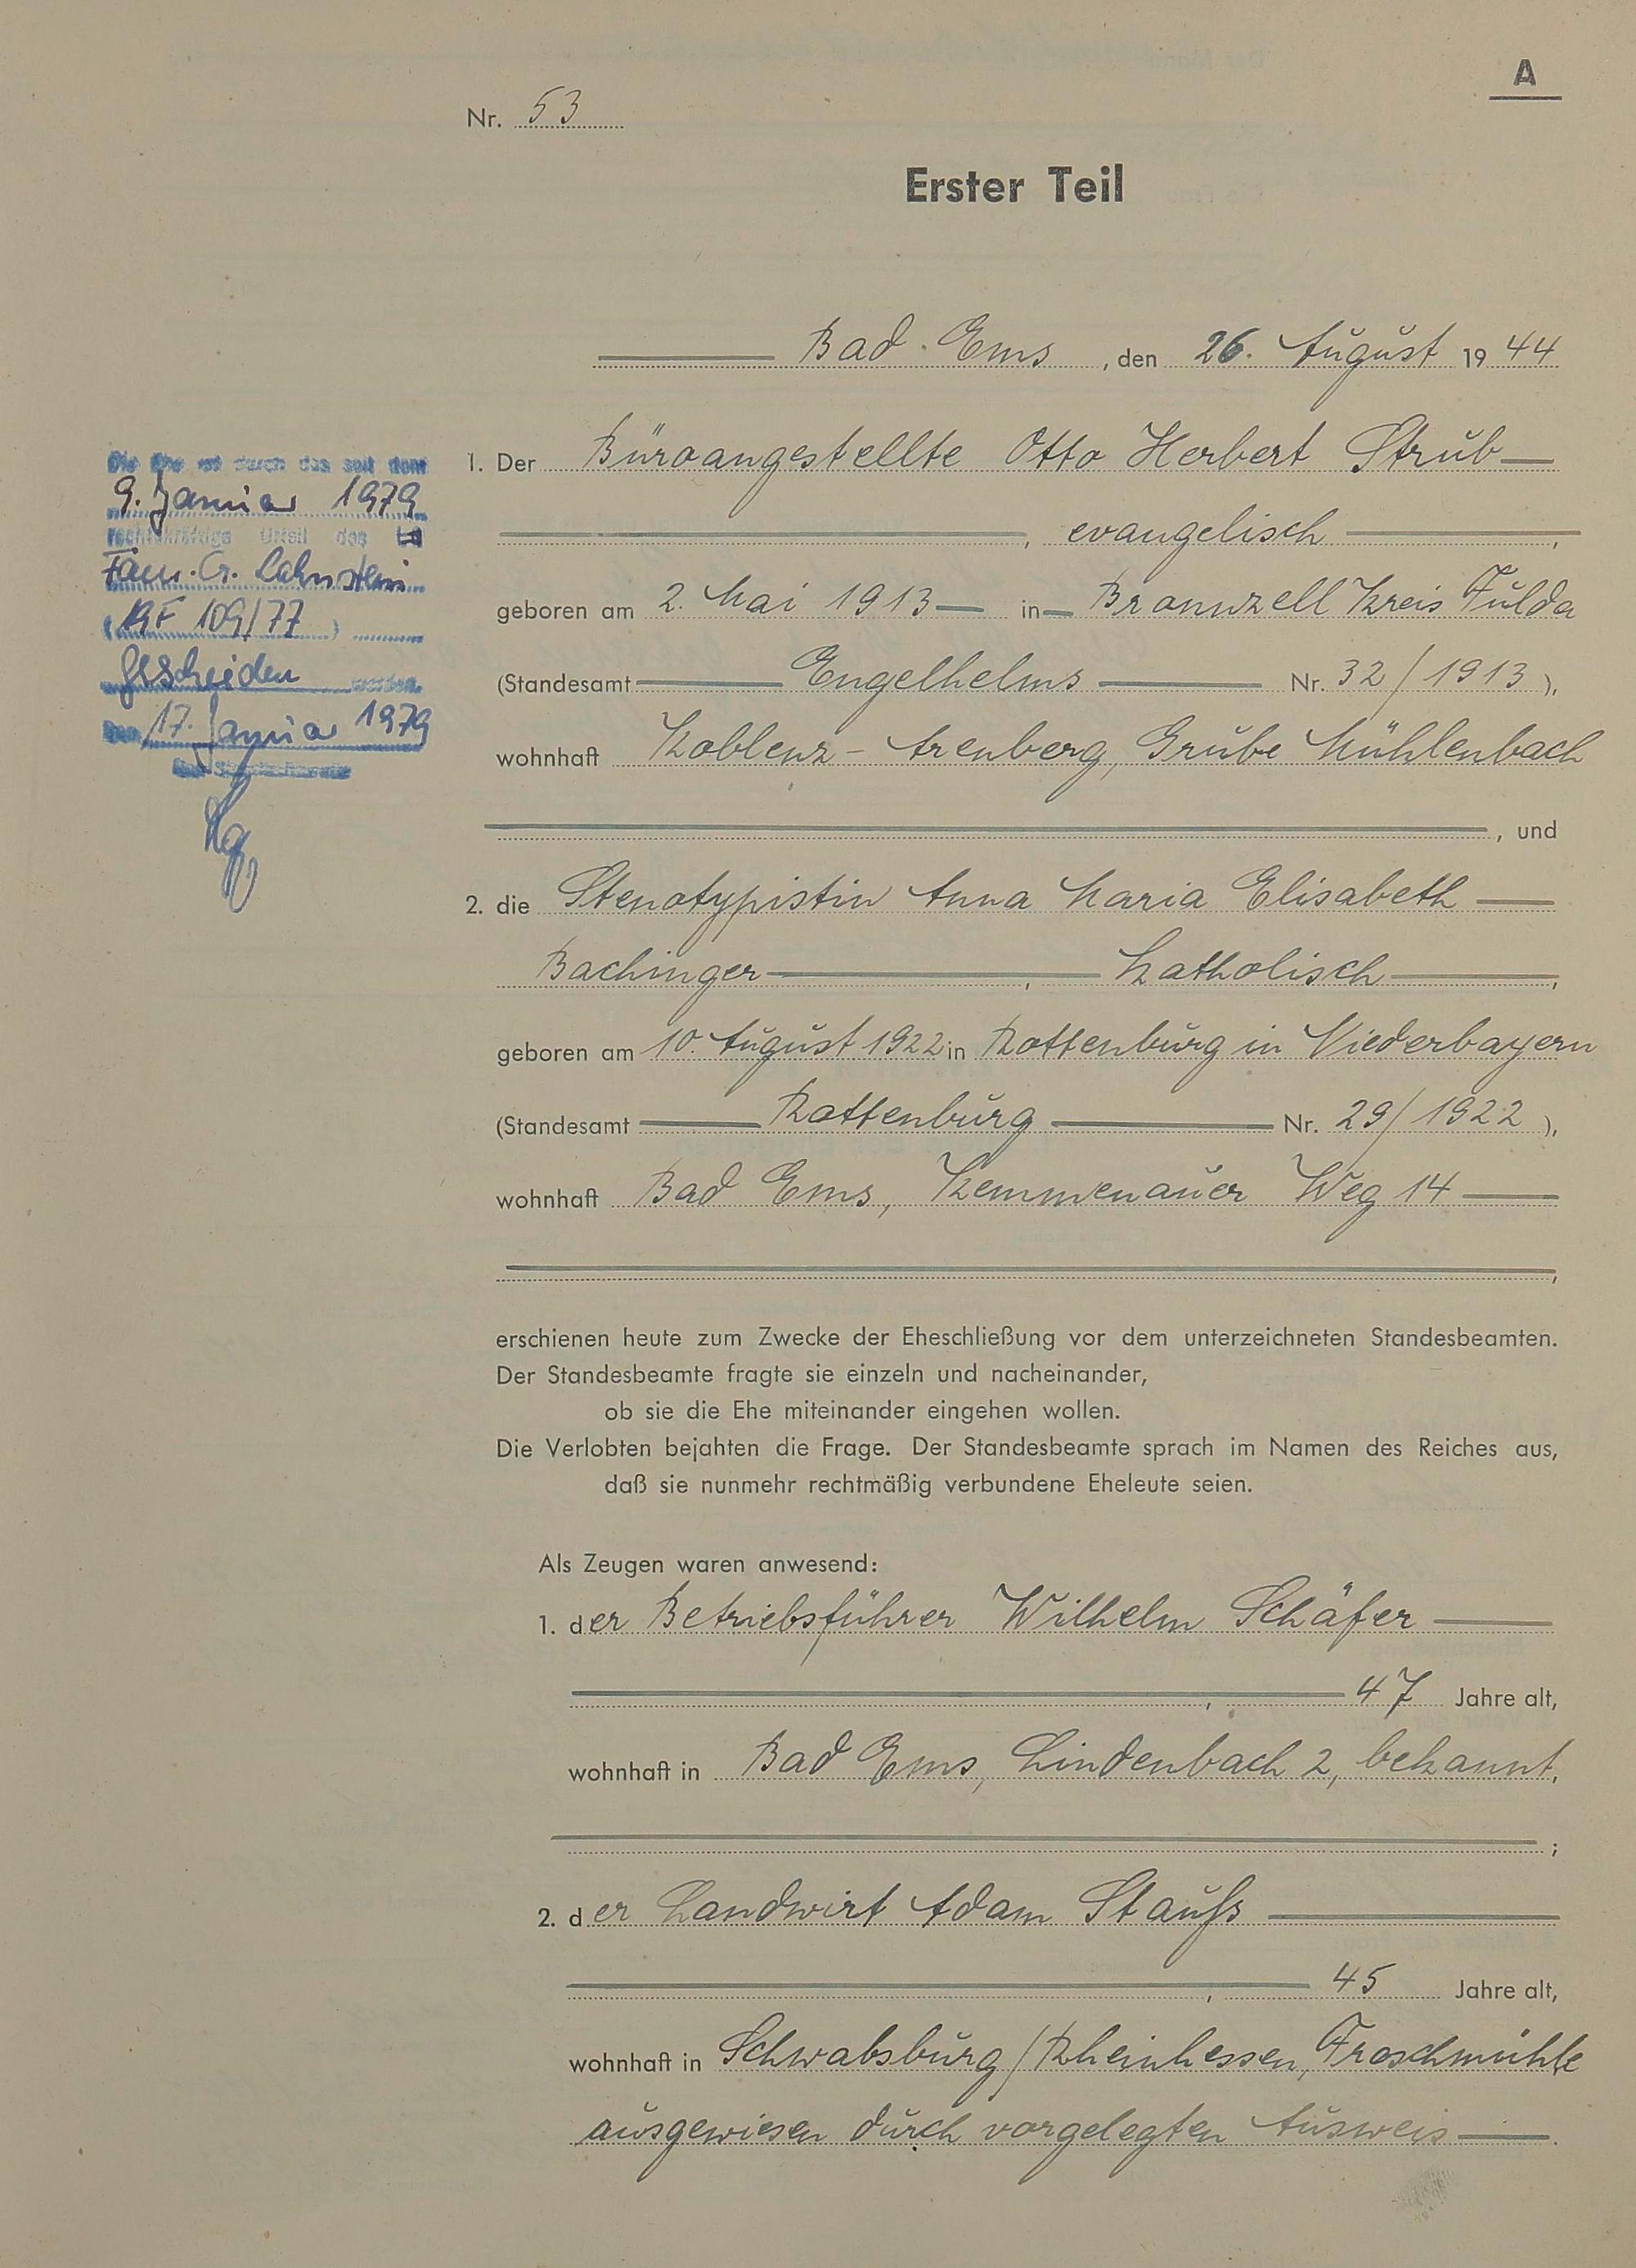 A
Nr. 53
Erster Teil
Bad-Ems, den 26. August 1944
1. Der Büroangestellte Otto Herbert Strub
, evangelisch,
geboren am 2. Mai 1913 in Bronnzell Kreis Fulda
(Standesamt Engelhelms Nr. 32/1913),
wohnhaft Koblenz-Arenberg, Grube Mühlenbach
, und
2. die Stenotypistin Anna Maria Elisabeth
Bachinger, katholisch,
geboren am 10. August 1922 in Rottenburg in Niederbayern
(Standesamt Rottenburg Nr. 29/1922),
wohnhaft Bad Ems, Kemmenauer Weg 14
,
erschienen heute zum Zwecke der Eheschließung vor dem unterzeichneten Standesbeamten.
Der Standesbeamte fragte sie einzeln und nacheinander,
ob sie die Ehe miteinander eingehen wollen.
Die Verlobten bejahten die Frage. Der Standesbeamte sprach im Namen des Reiches aus,
daß sie nunmehr rechtmäßig verbundene Eheleute seien.
Als Zeugen waren anwesend:
1. der Betriebsführer Wilhelm Schäfer
, 47 Jahre alt,
wohnhaft in Bad Ems, Lindenbach 2, bekannt.
;
2. der Landwirt Adam Stauß
, 45 Jahre alt,
wohnhaft in Schwabsburg/Rheinhessen, Froschmühle
ausgewiesen durch vorgelegten Ausweis.
Die Ehe ist durch das seit dem
9. Januar 1979
rechtskräftige Urteil des
Fam. G. Lahnstein
( F 109/77 )
geschieden worden.
Den 17. Januar 1979
Der Standesbeamte